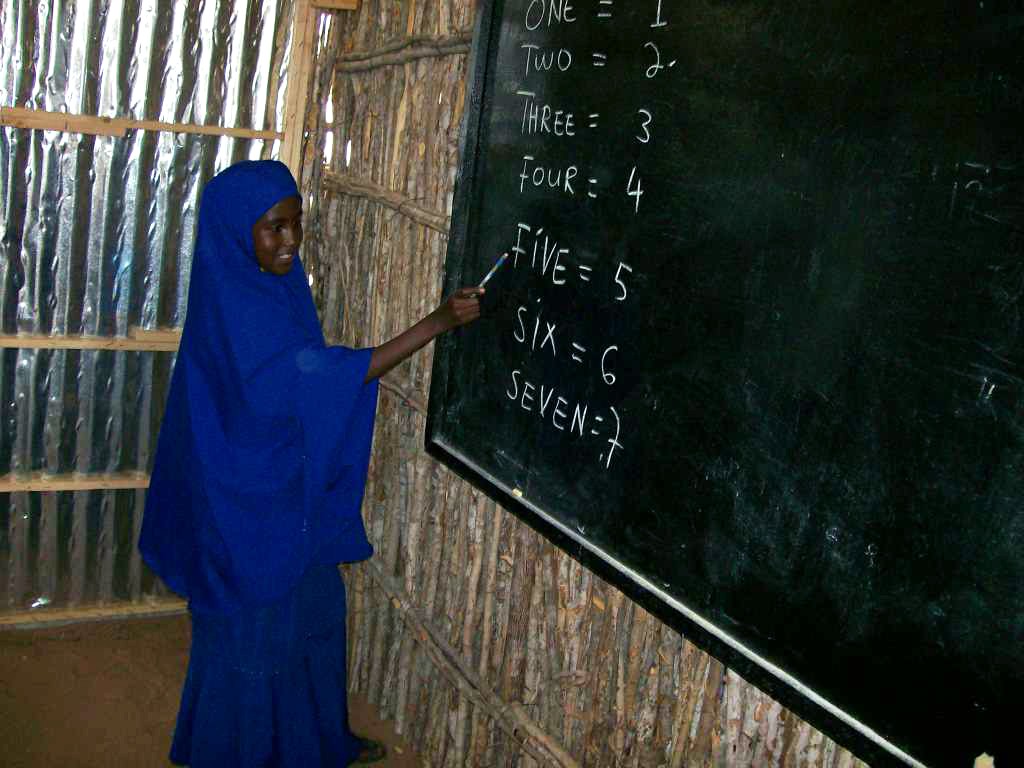 ONE = 1
TWO = 2.
THREE = 3
FOUR = 4
FiVE = 5
SiX = 6
SEVEN = 7